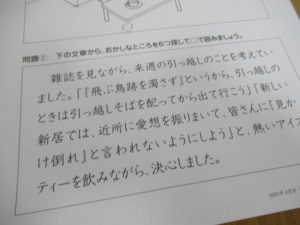 問題② 下の文章から、おかしなところを6つ探して○で囲みましょう。
雑誌を見ながら、来週の引っ越しのことを考えてい
ました。「『飛ぶ鳥跡を濁さず』というから、引っ越しの
ときは引っ越しそばを配ってから出て行こう」「新しい
新居では、近所に愛想を振りまいて、皆さんに『見か
け倒れ』と言われないようにしよう」と、熱いアイス
ティーを飲みながら、決心しました。